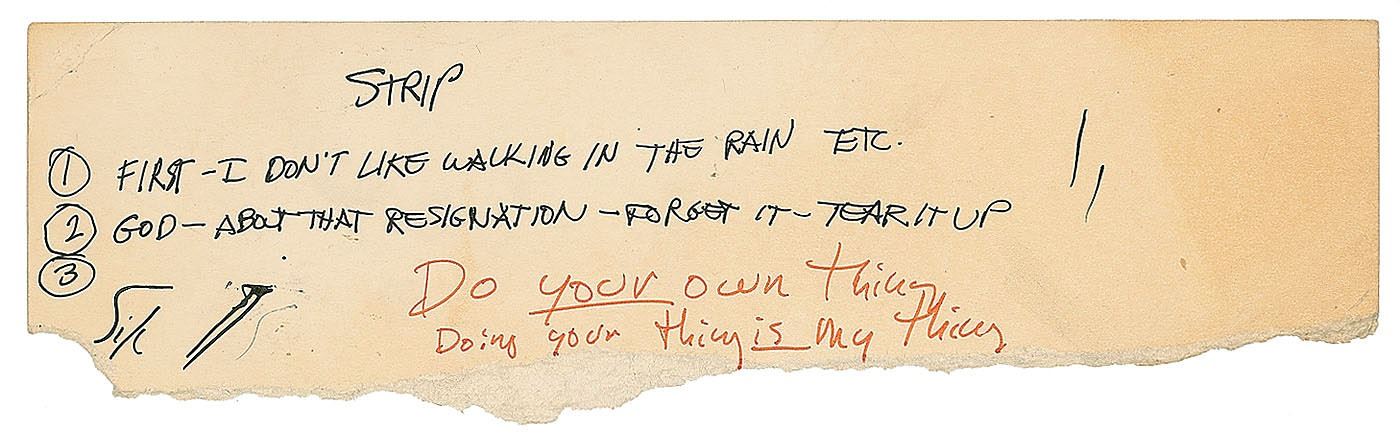 STRIP
① FIRST - I DON'T LIKE WALKING IN THE RAIN ETC.
② GOD - ABOUT THAT RESIGNATION - FORGET IT - TEAR IT UP
③
Do your own thing
Doing your thing is my thing